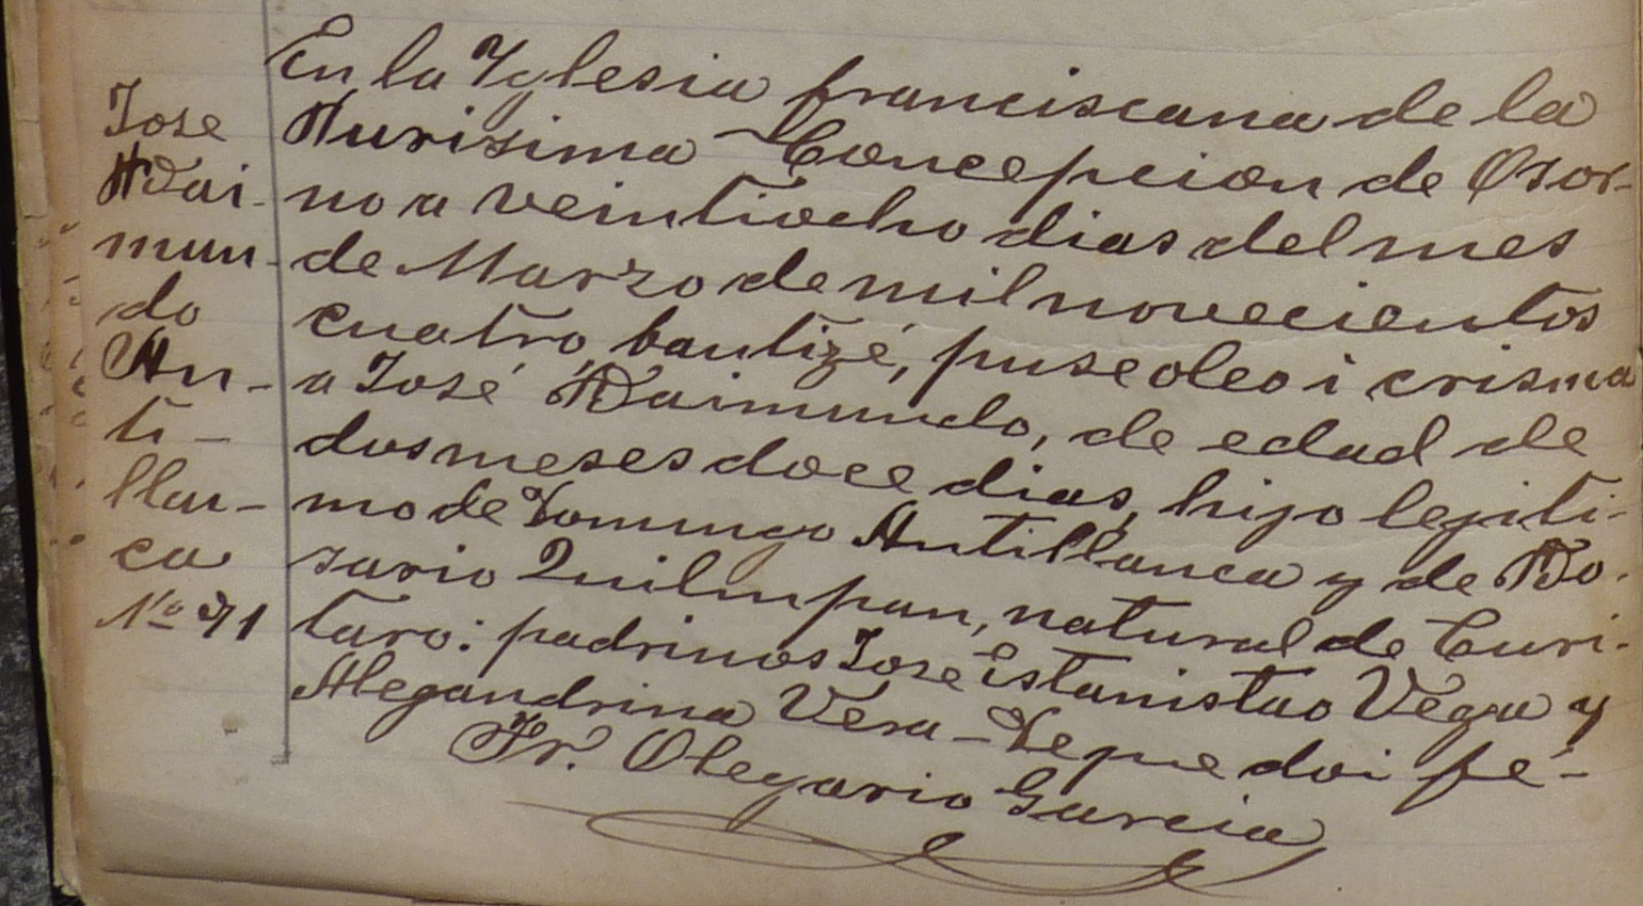 Jose
Rai-
mun-
do
An-
ti-
llan-
ca
Nº 71
En la Yglesia franciscana de la
Purisima Concepcion de Osor-
no a veintiocho dias del mes
de Marzo de mil novecientos
cuatro, bautizé, puse oleo i crisma
a José Raimundo, de edad de
dos meses doce dias, hijo lejiti-
mo de Domingo Antillanca y de Ro-
sario Quilupan, natural de Curi-
taro: padrinos Jose Estanislao Vega y
Alegandrina Vera - De que doi fé -
Fr. Olegario Garcia